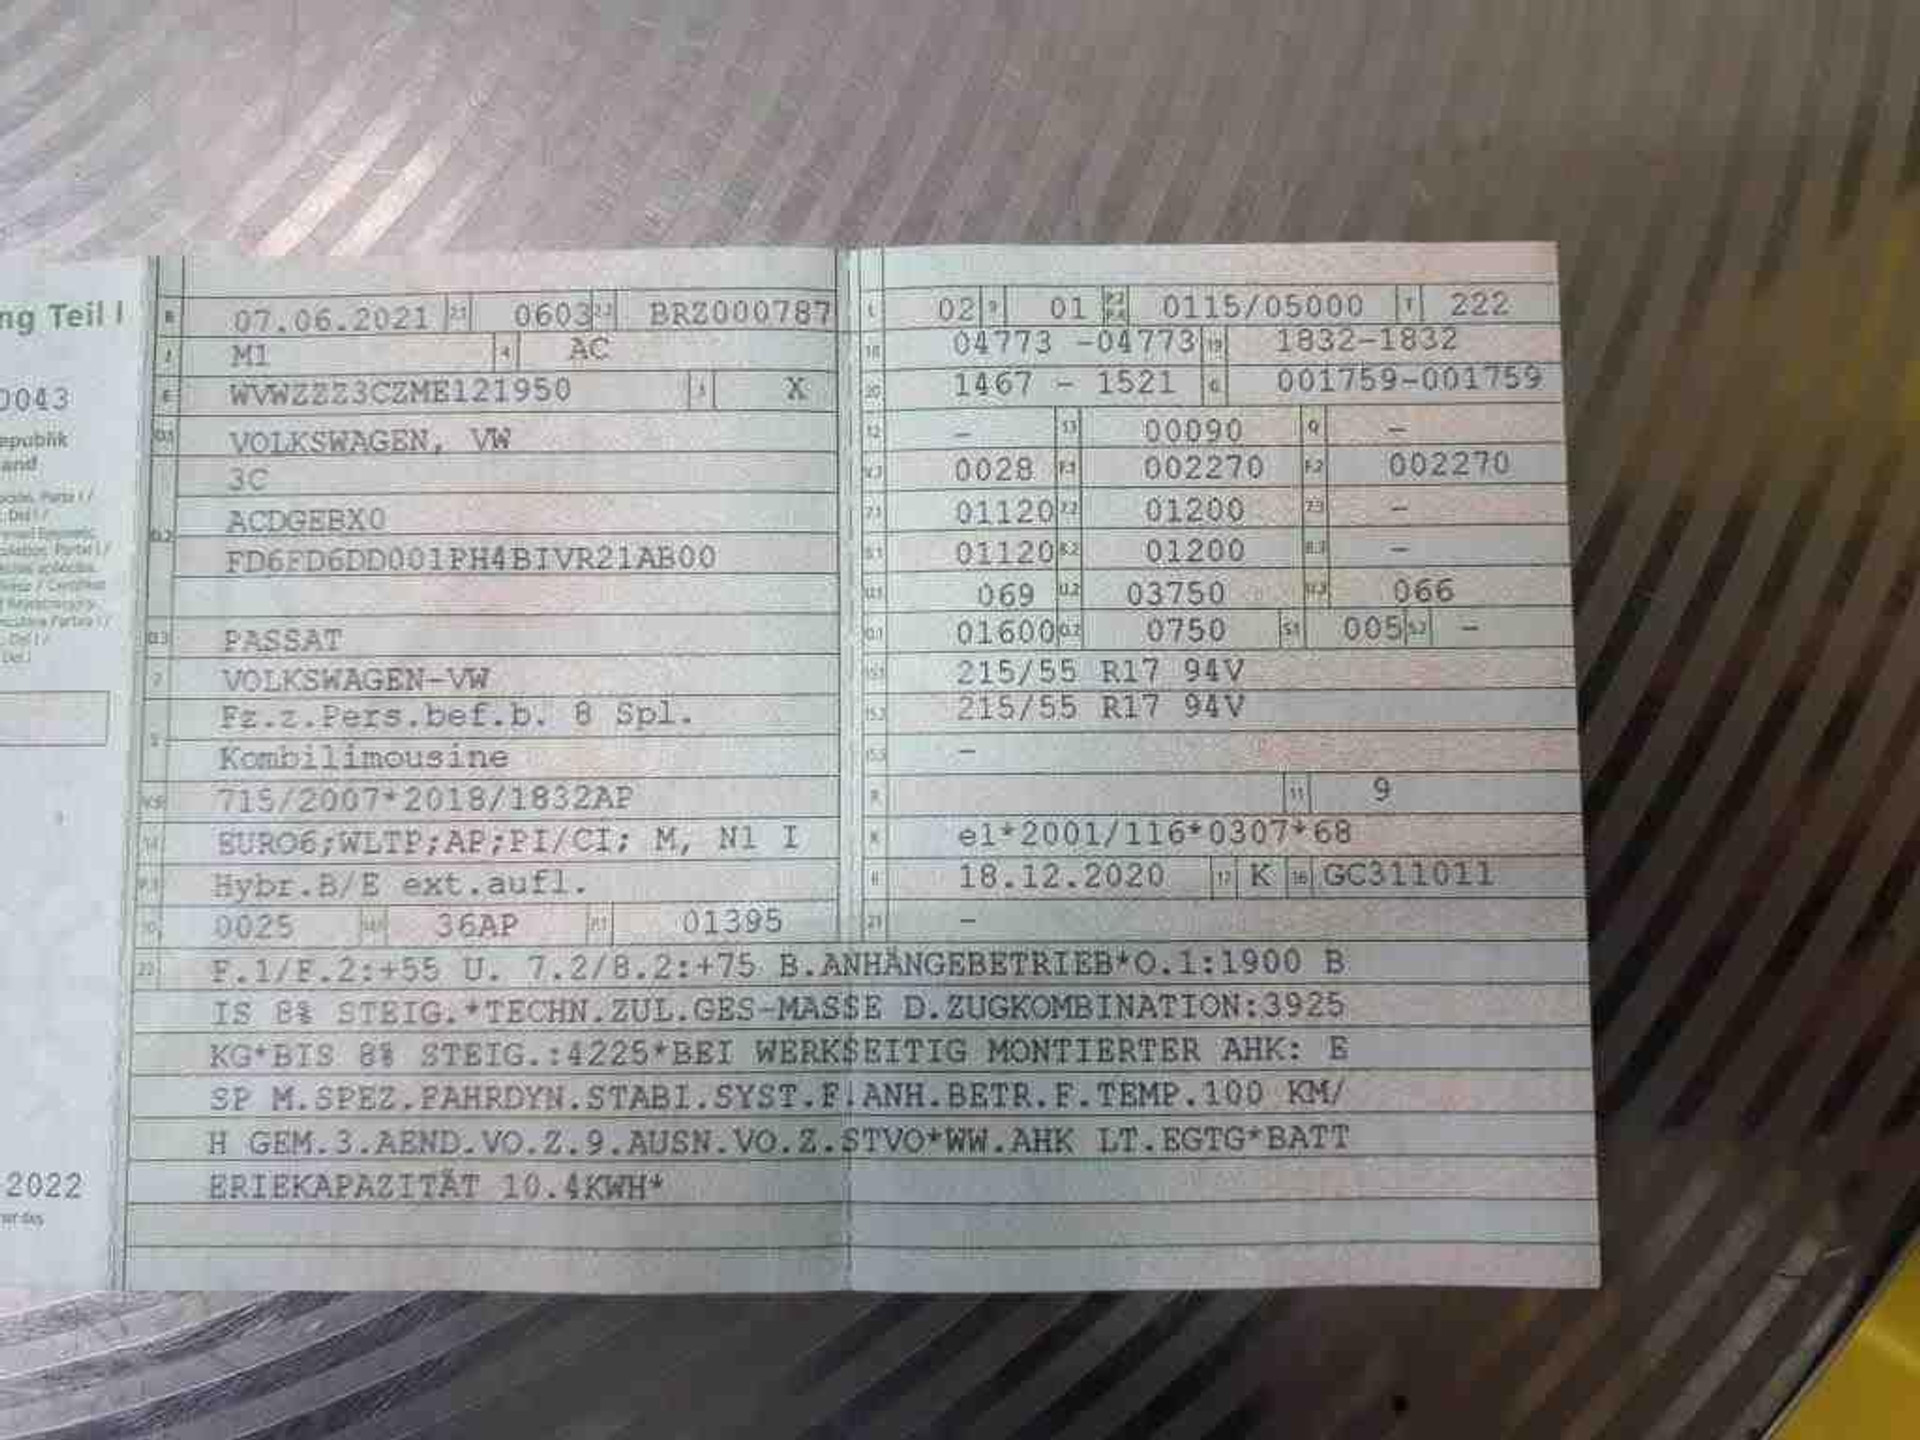 ng Teil I
0043
epublik
and
2022
B 07.06.2021 2.1 0603 2.2 BRZ000787
J M1 4 AC
E WVWZZZ3CZME121950 3 X
D.1 VOLKSWAGEN, VW
3C
D.2 ACDGEBX0
FD6FD6DD001PH4BIVR21AB00
D.3 PASSAT
2 VOLKSWAGEN-VW
5 Fz.z.Pers.bef.b. 8 Spl.
Kombilimousine
V.9 715/2007*2018/1832AP
14 EURO6;WLTP;AP;PI/CI; M, N1 I
P.3 Hybr.B/E ext.aufl.
10 0025 14.1 36AP P.1 01395
L 02 9 01 P.2 P.4 0115/05000 T 222
18 04773 -04773 19 1832-1832
20 1467 - 1521 G 001759-001759
12 - 13 00090 Q -
V.7 0028 F.1 002270 F.2 002270
7.1 01120 7.2 01200 7.3 -
8.1 01120 8.2 01200 8.3 -
U.1 069 U.2 03750 U.3 066
O.1 01600 O.2 0750 S.1 005 S.2 -
15.1 215/55 R17 94V
15.2 215/55 R17 94V
15.3 -
R 11 9
K e1*2001/116*0307*68
6 18.12.2020 17 K 16 GC311011
21 -
22 F.1/F.2:+55 U. 7.2/8.2:+75 B.ANHÄNGEBETRIEB*O.1:1900 B
IS 8% STEIG.*TECHN.ZUL.GES-MASSE D.ZUGKOMBINATION:3925
KG*BIS 8% STEIG.:4225*BEI WERKSEITIG MONTIERTER AHK: E
SP M.SPEZ.FAHRDYN.STABI.SYST.F.ANH.BETR.F.TEMP.100 KM/
H GEM.3.AEND.VO.Z.9.AUSN.VO.Z.STVO*WW.AHK LT.EGTG*BATT
ERIEKAPAZITÄT 10.4KWH*